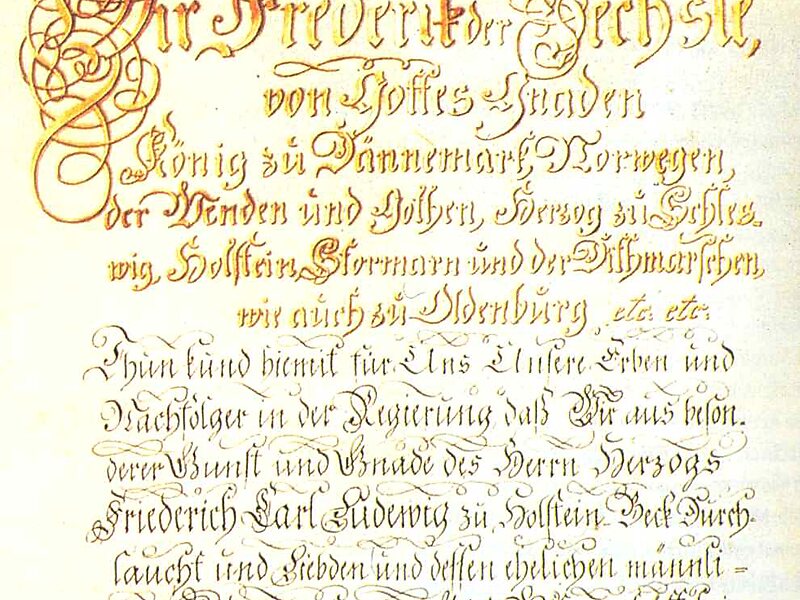 Wir Frederik der Sechste,
von Gottes Gnaden
König zu Dännemark, Norwegen,
der Wenden und Gothen, Herzog zu Schles-
wig, Holstein, Stormarn und der Dithmarschen,
wie auch zu Oldenburg etc. etc.
Thun kund hiemit für Uns Unsere Erben und
Nachfolger in der Regierung, daß Wir aus beson-
derer Gunst und Gnade des Herrn Herzogs
Friederich Carl Ludewig zu Holstein-Beck Durch-
laucht und Liebden und dessen ehelichen männli-